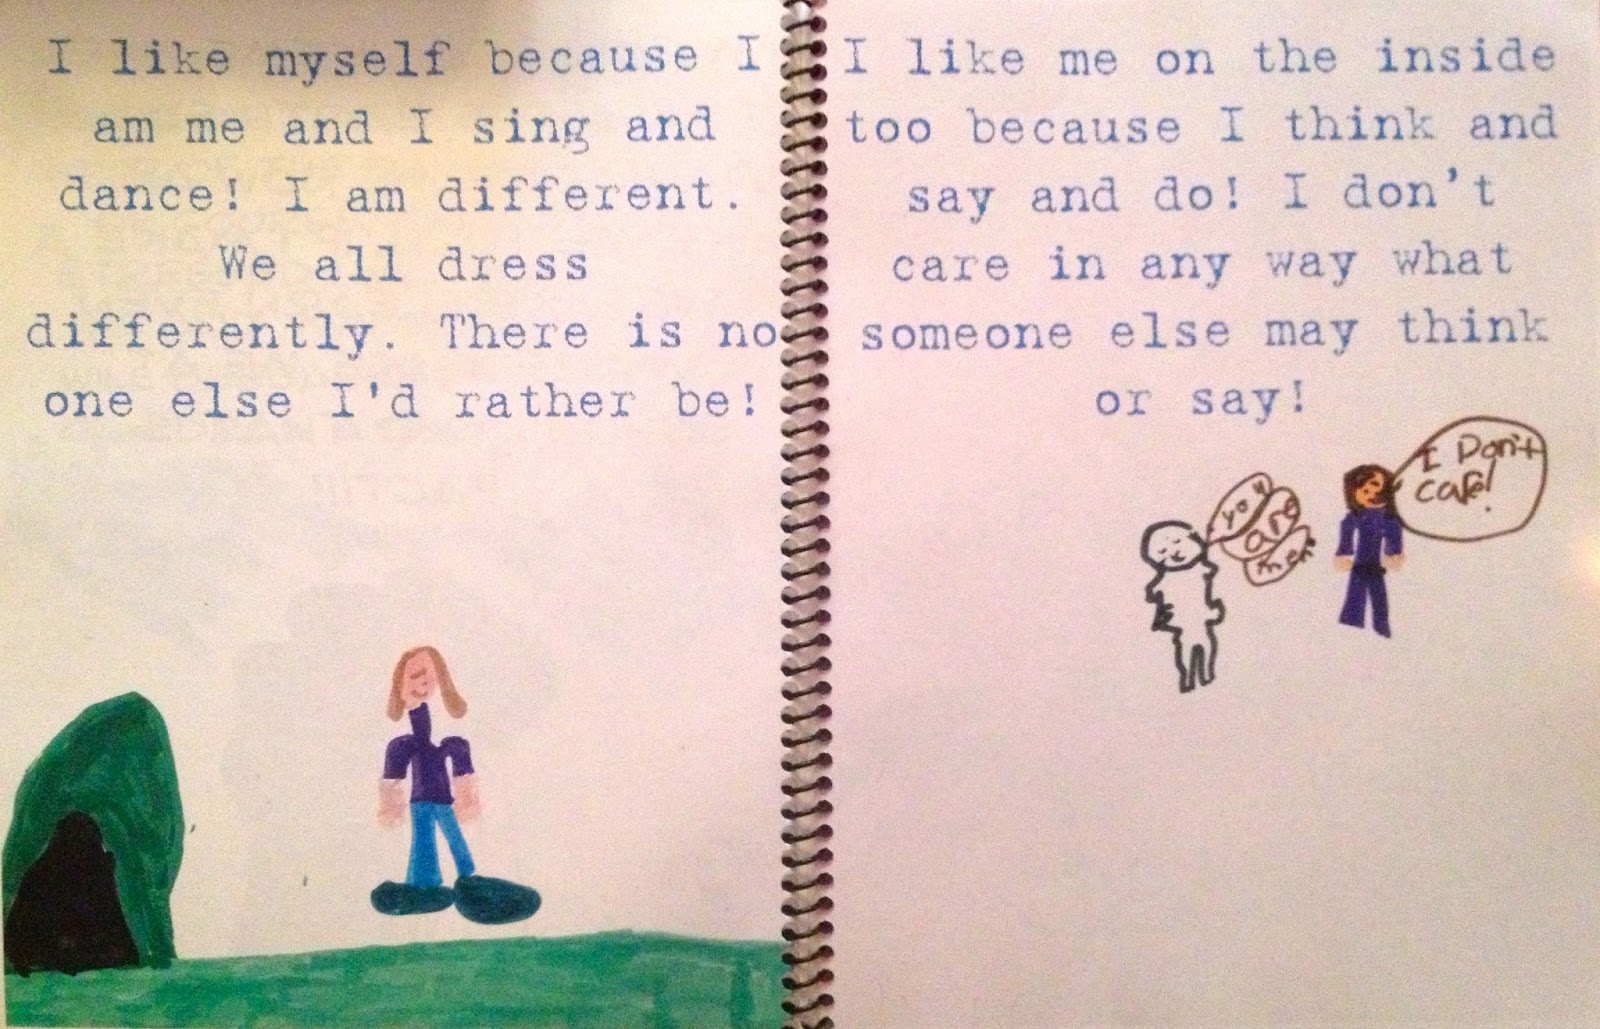 I like myself because I
am me and I sing and
dance! I am different.
We all dress
differently. There is no
one else I'd rather be!
I like me on the inside
too because I think and
say and do! I don't
care in any way what
someone else may think
or say!
you
are
I Don't
care!